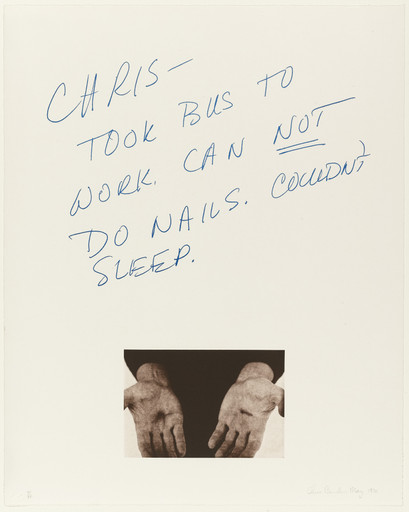 CHRIS—
TOOK BUS TO
WORK. CAN NOT
DO NAILS. COULDN'T
SLEEP.